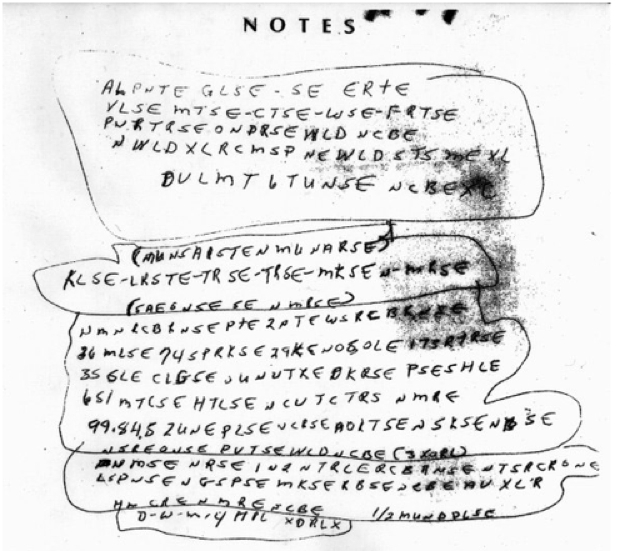 NOTES
ALPNTE GLSE-SE ERTE
VLSE MTSE-CTSE-WSE-FRTSE
PNRTRSEONPRSEWLD NCBE
NWLDXLRCMSP NEWLDSTS MEXL
DULMT6TUNSE NCBEXC
(MUNSAISTENMUNARSE)
KLSE-LRSTE-TRSE-TRSE-MKSEN-MRSE
(SAEGNSE SE NMRSE)
NMNRCBRNSEPTE2PTEWSRCBRNSE
36MLSE74SPRKSE29KENOSOLE173RTRSE
35GLE CLGSE UNUTXE DKRSE PSESHLE
651MTCSE HTLSE NCUTCTRS NMRE
99.84.52UNEPLSENCRSEAOLTSENSKSENBSE
NSREONSE PVTSEWLDNCBE (3XORL)
NMSE NRSE IN2NTRLERCBRNSENTSRCRONE
LSPNSENGSPSE MKSERBSENCBE AVXLR
HM CRENMRENCBE 1/2MUNDPLSE
D-W-M-14 MIL XDRLX